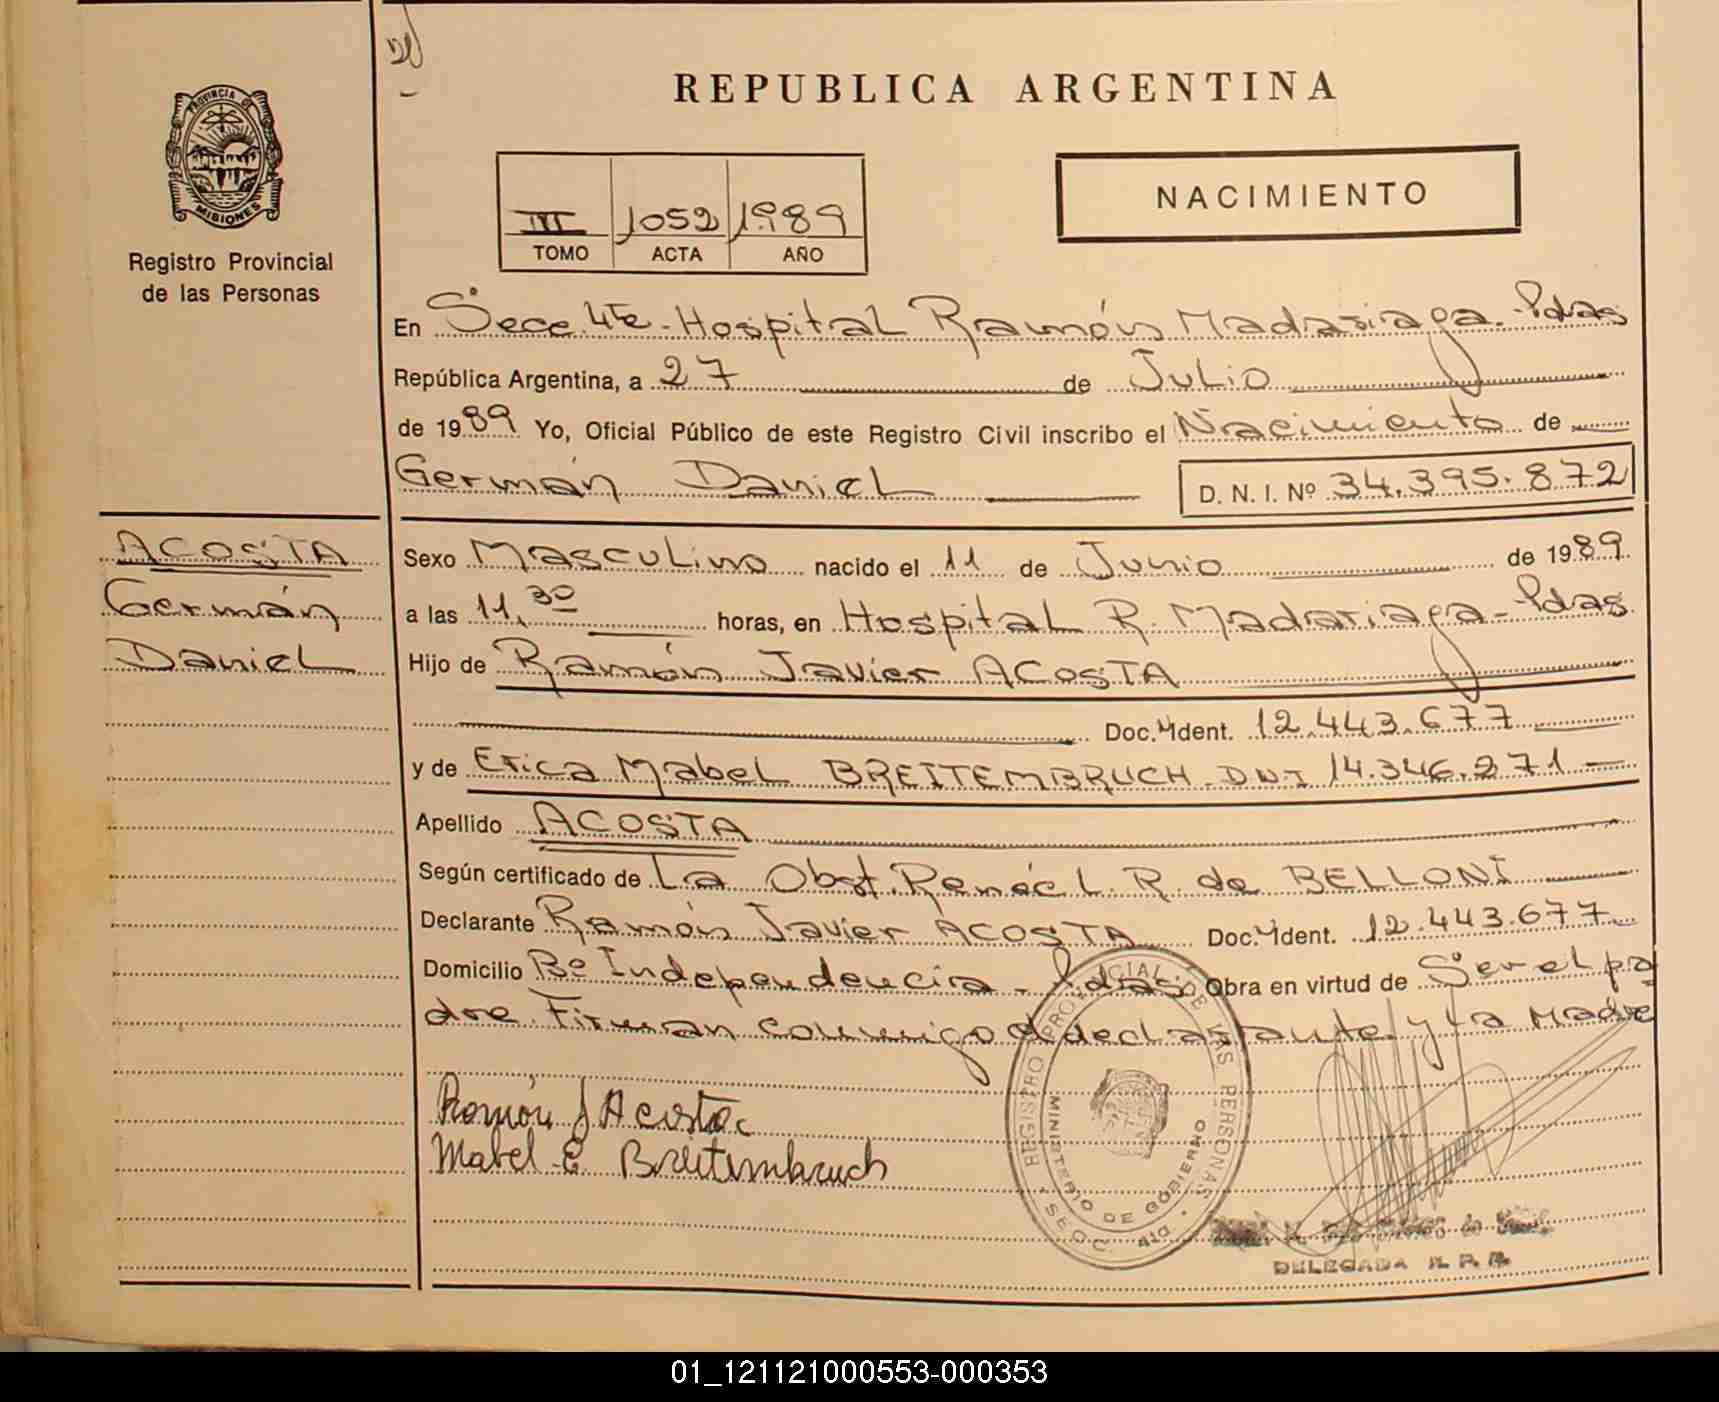 REPUBLICA ARGENTINA
PROVINCIA DE
MISIONES
Registro Provincial
de las Personas
NACIMIENTO
III 1052 1989
TOMO ACTA AÑO
En Secc 4te. Hospital Ramón Madariaga. Pdas
República Argentina, a 27 de Julio
de 1989 Yo, Oficial Público de este Registro Civil inscribo el Nacimiento de
Germán Daniel D. N. I. Nº 34.395.872
ACOSTA
Germán
Daniel
Sexo Masculino nacido el 11 de Junio de 1989
a las 11,30 horas, en Hospital R. Madariaga - Pdas
Hijo de Ramón Javier ACOSTA
Doc. Ident. 12.443.677
y de Erica Mabel BREITEMBRUCH. DNI 14.346.271
Apellido ACOSTA
Según certificado de La Obst. Renée L. R. de BELLONI
Declarante Ramón Javier ACOSTA Doc. Ident. 12.443.677
Domicilio Bº Independencia - Pdas Obra en virtud de Ser el pa
dre. Firman conmigo el declarante y la Madre
Ramón J Acosta
Mabel E Breitembruch
REGISTRO PROVINCIAL DE LAS PERSONAS
MINISTERIO DE GOBIERNO
DELEGADA R. P. P.
01_121121000553-000353